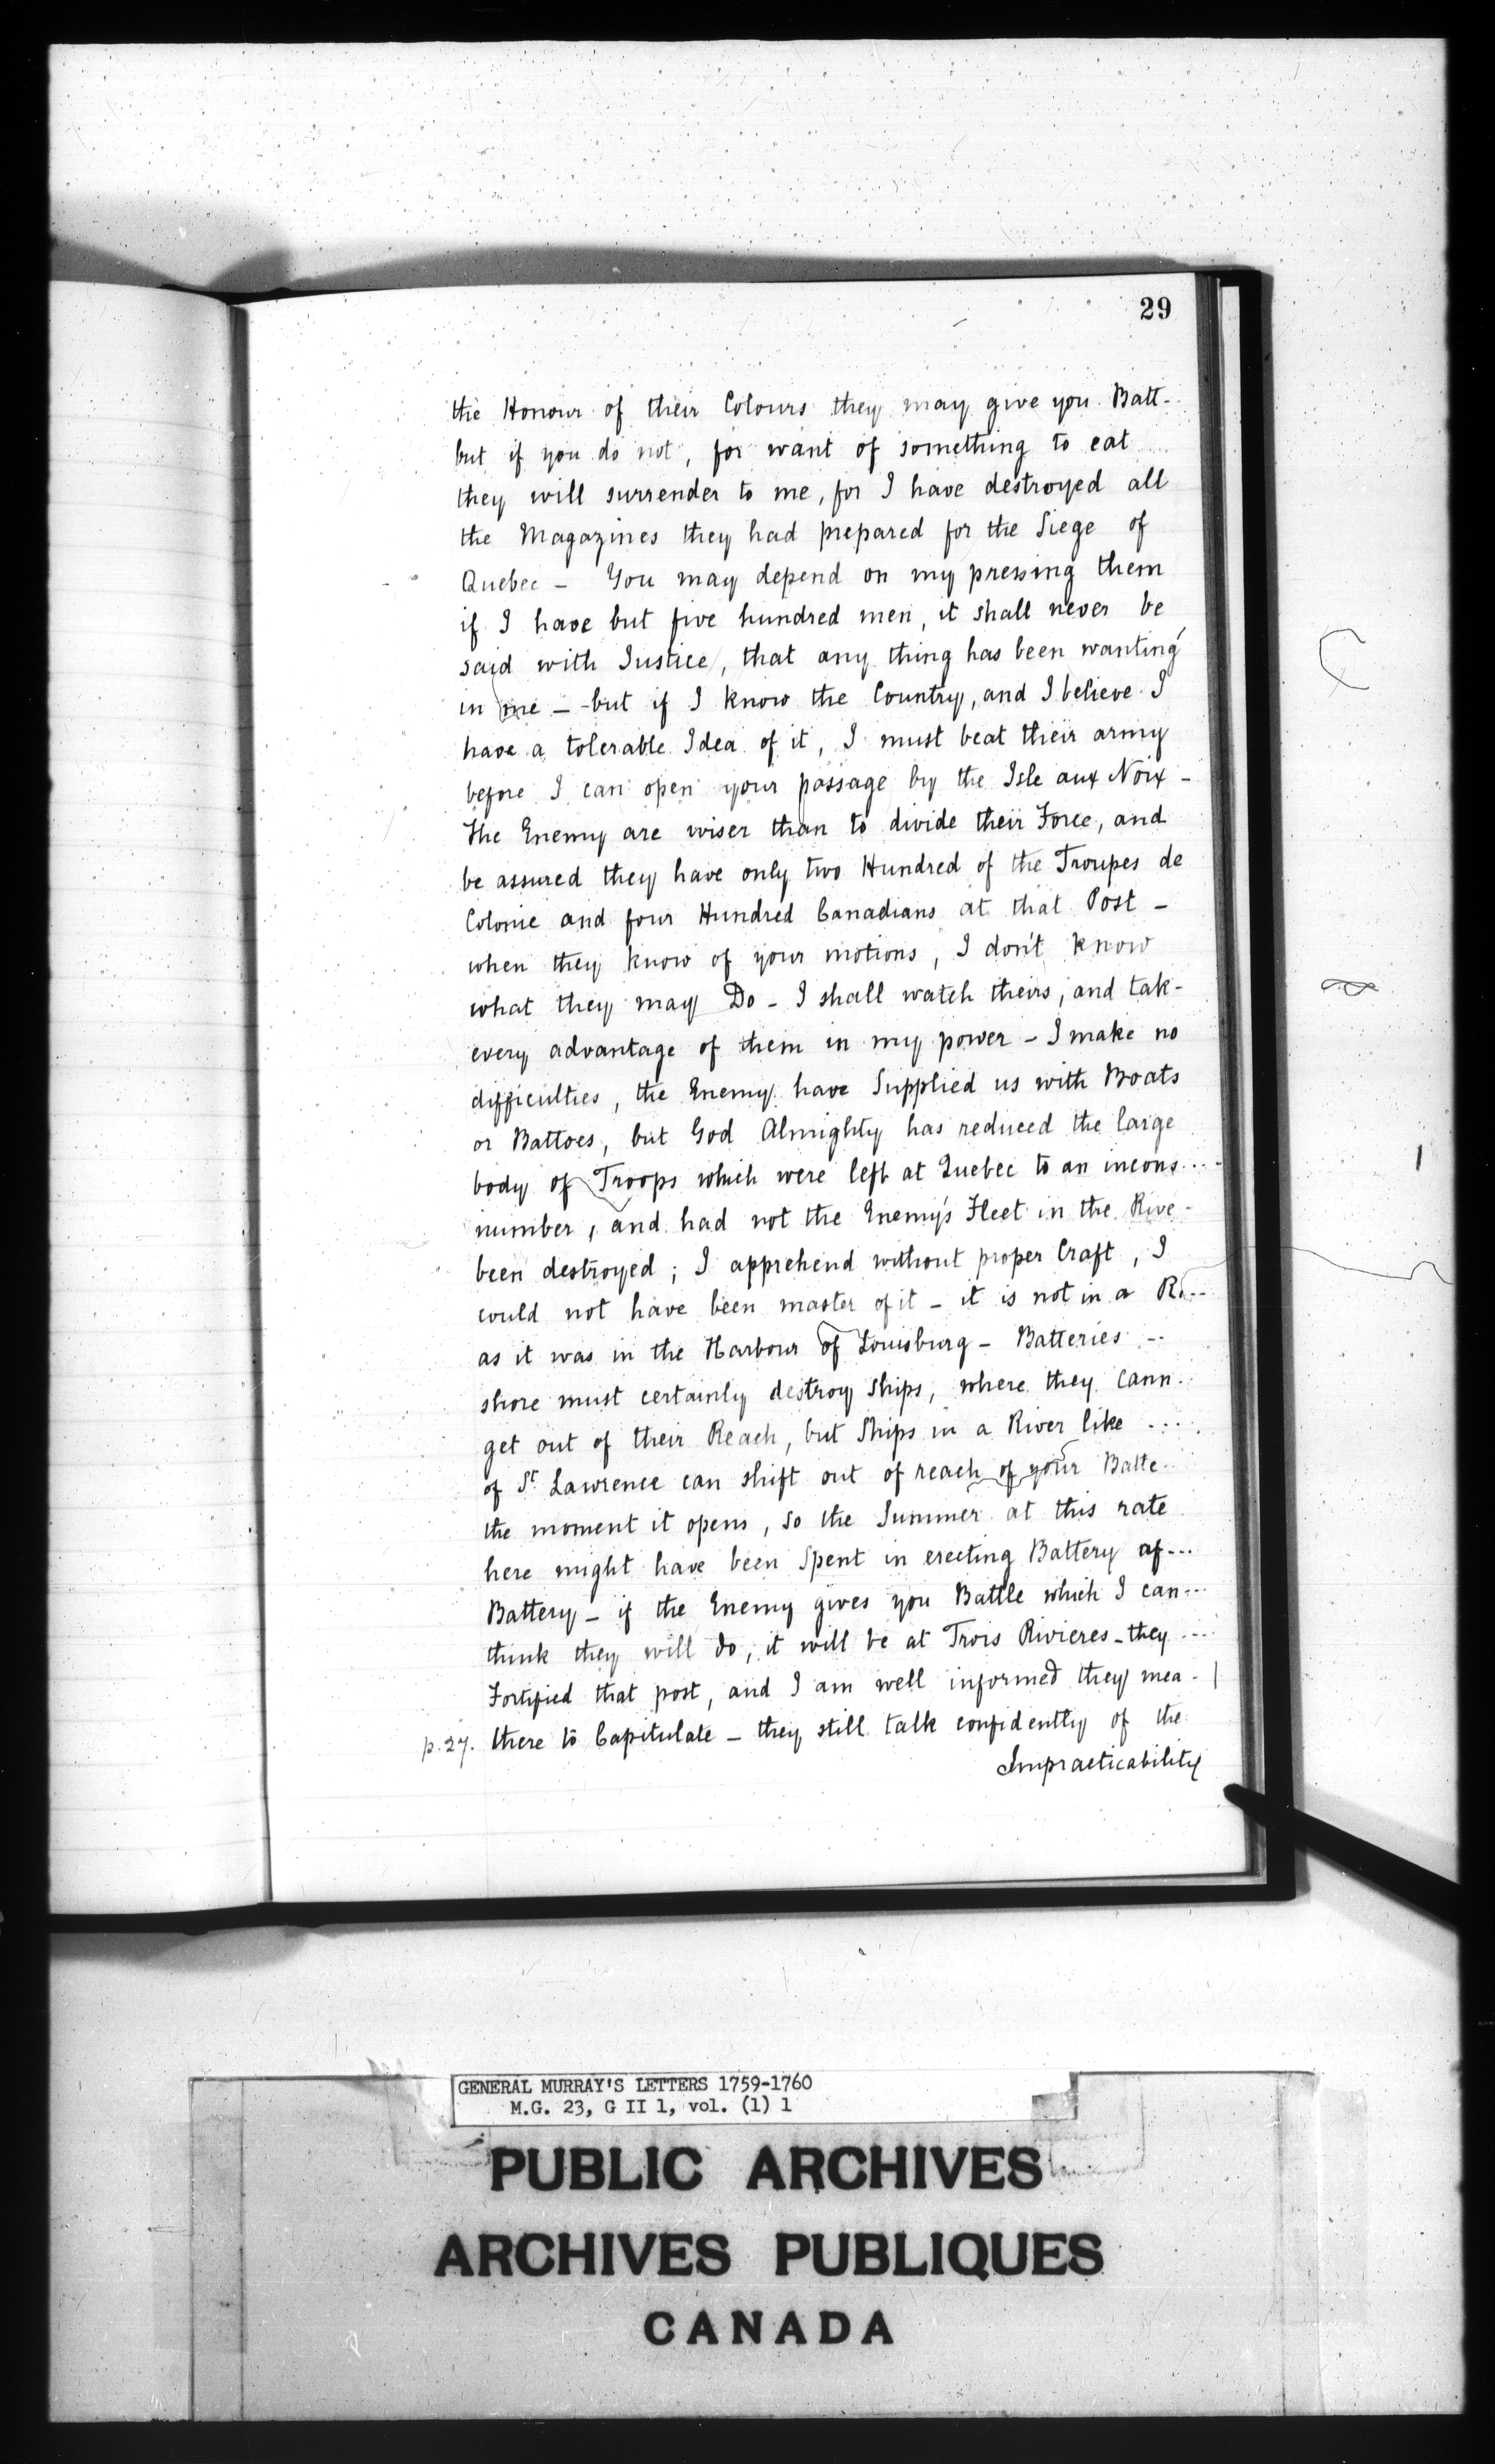 29
the Honour of their Colours they may give you Batt-..
but if you do not, for want of something to eat ....
they will surrender to me, for I have destroyed all
the Magazines they had prepared for the Siege of
Quebec - You may depend on my pressing them
if I have but five hundred men, it shall never be
said with Justice, that any thing has been wanting
in me - but if I know the Country, and I believe I
have a tolerable Idea of it, I must beat their army
before I can open your passage by the Isle aux Noix -
The Enemy are wiser than to divide their Force, and
be assured they have only two Hundred of the Troupes de
Colonie and four Hundred Canadians at that Post -
when they know of your motions, I don't know
what they may Do - I shall watch theirs, and tak-
every advantage of them in my power - I make no
difficulties, the Enemy have Supplied us with Boats
or Battoes, but God Almighty has reduced the large
body of Troops which were left at Quebec to an incons....
number, and had not the Enemy's Fleet in the Rive-
been destroyed; I apprehend without proper Craft, I
could not have been master of it - it is not in a Ri...
as it was in the Harbour of Louisburg - Batteries ...
shore must certainly destroy Ships, where they cann..
get out of their Reach, but Ships in a River like ....
of St Lawrence can shift out of reach of your Batte..
the moment it opens, so the Summer at this rate
here might have been Spent in erecting Battery af...
Battery - if the Enemy gives you Battle which I can...
think they will do, it will be at Trois Rivieres - they ...
Fortified that post, and I am well informed they mea-
p.27. there to Capitulate - they still talk confidently of the
Impracticability
GENERAL MURRAY'S LETTERS 1759-1760
M.G. 23, G II 1, vol. (1) 1
PUBLIC ARCHIVES
ARCHIVES PUBLIQUES
CANADA